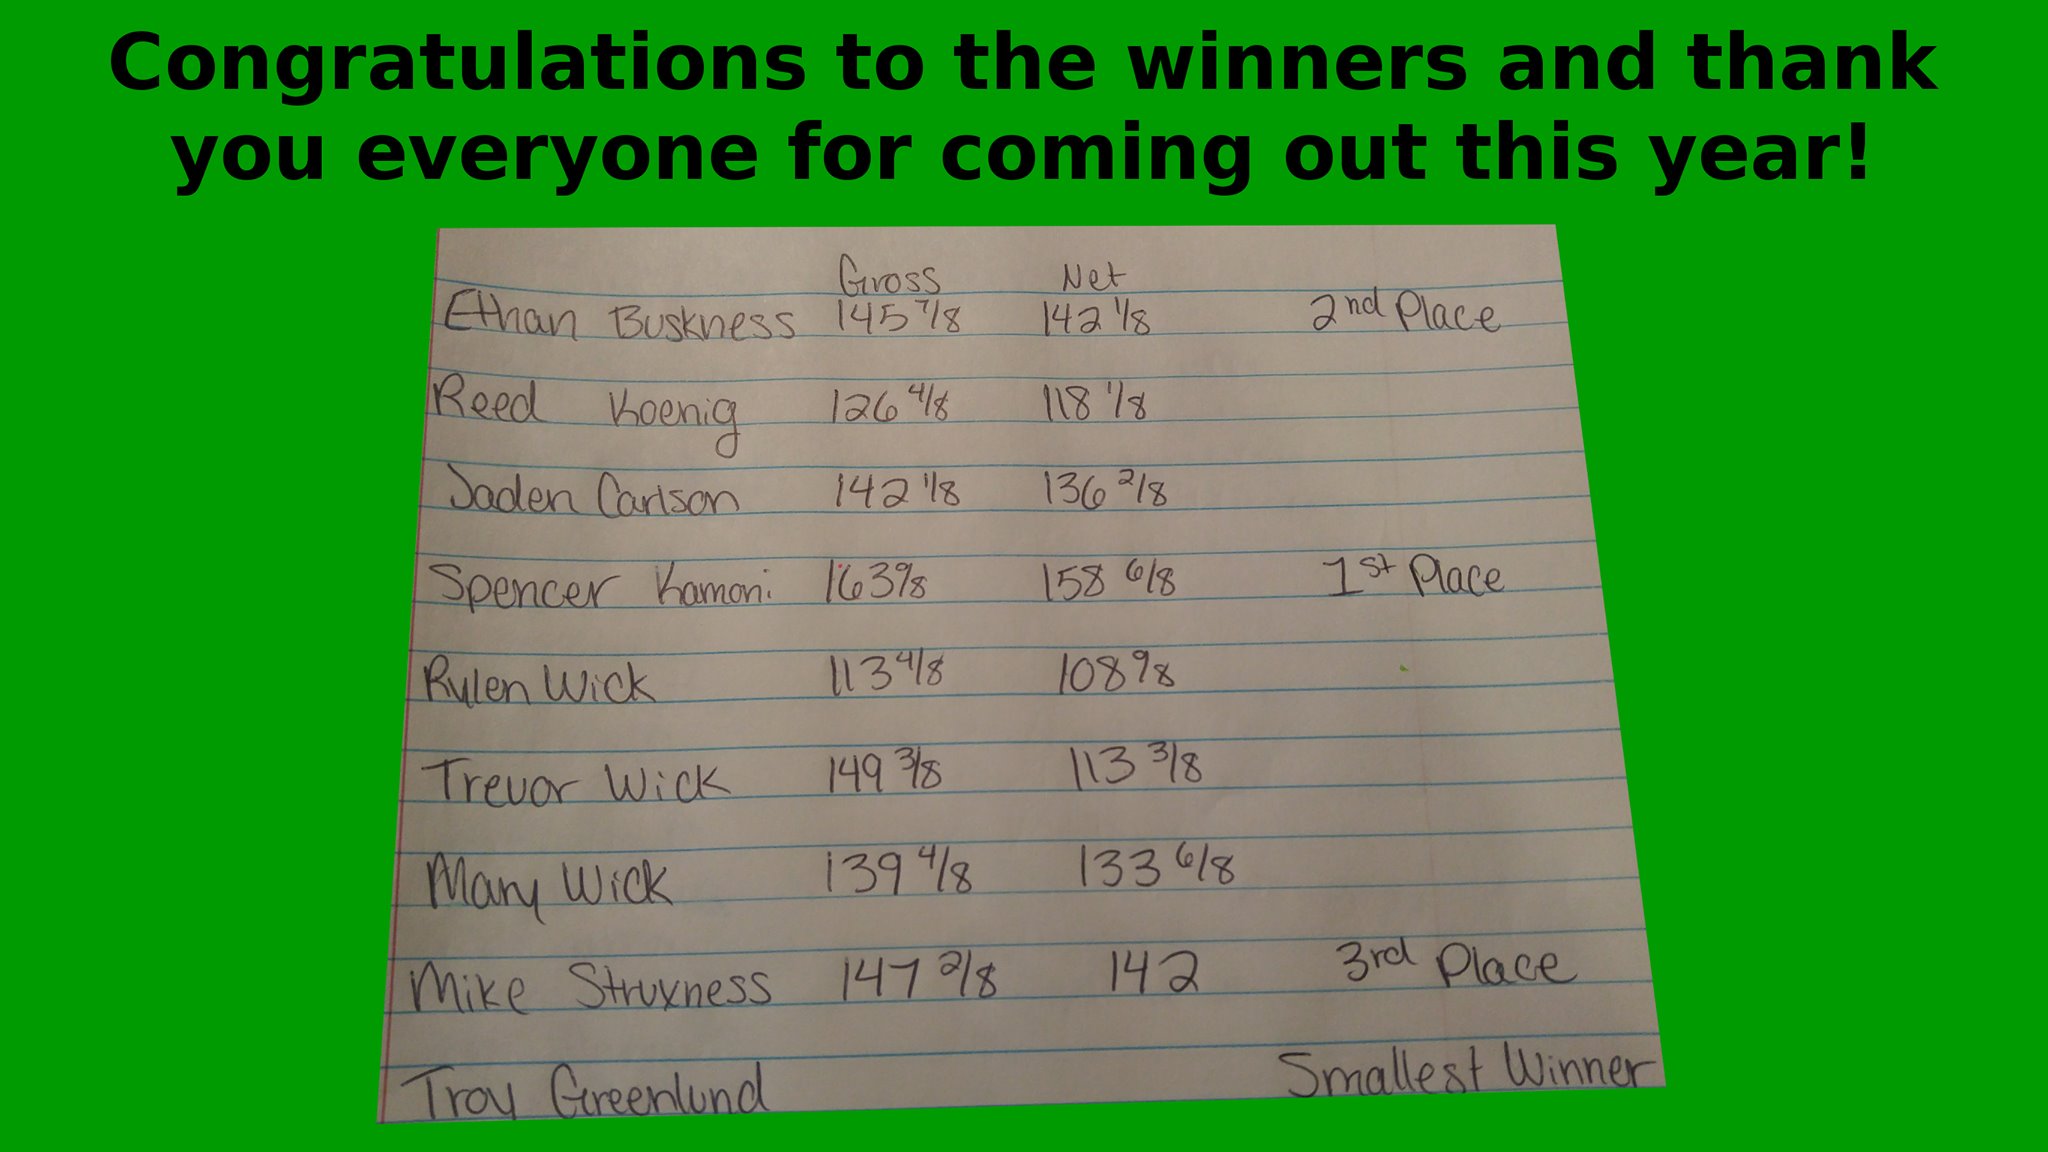 Congratulations to the winners and thank
you everyone for coming out this year!
Gross Net
Ethan Buskness 145 7/8 142 1/8 2nd Place
Reed Koenig 126 4/8 118 1/8
Jaden Carlson 142 1/8 136 2/8
Spencer Kamoni 163 9/8 158 6/8 1st Place
Rylen Wick 113 4/8 108 9/8
Trevor Wick 149 3/8 113 3/8
Mary Wick 139 4/8 133 6/8
Mike Struxness 147 2/8 142 3rd Place
Troy Greenlund Smallest Winner